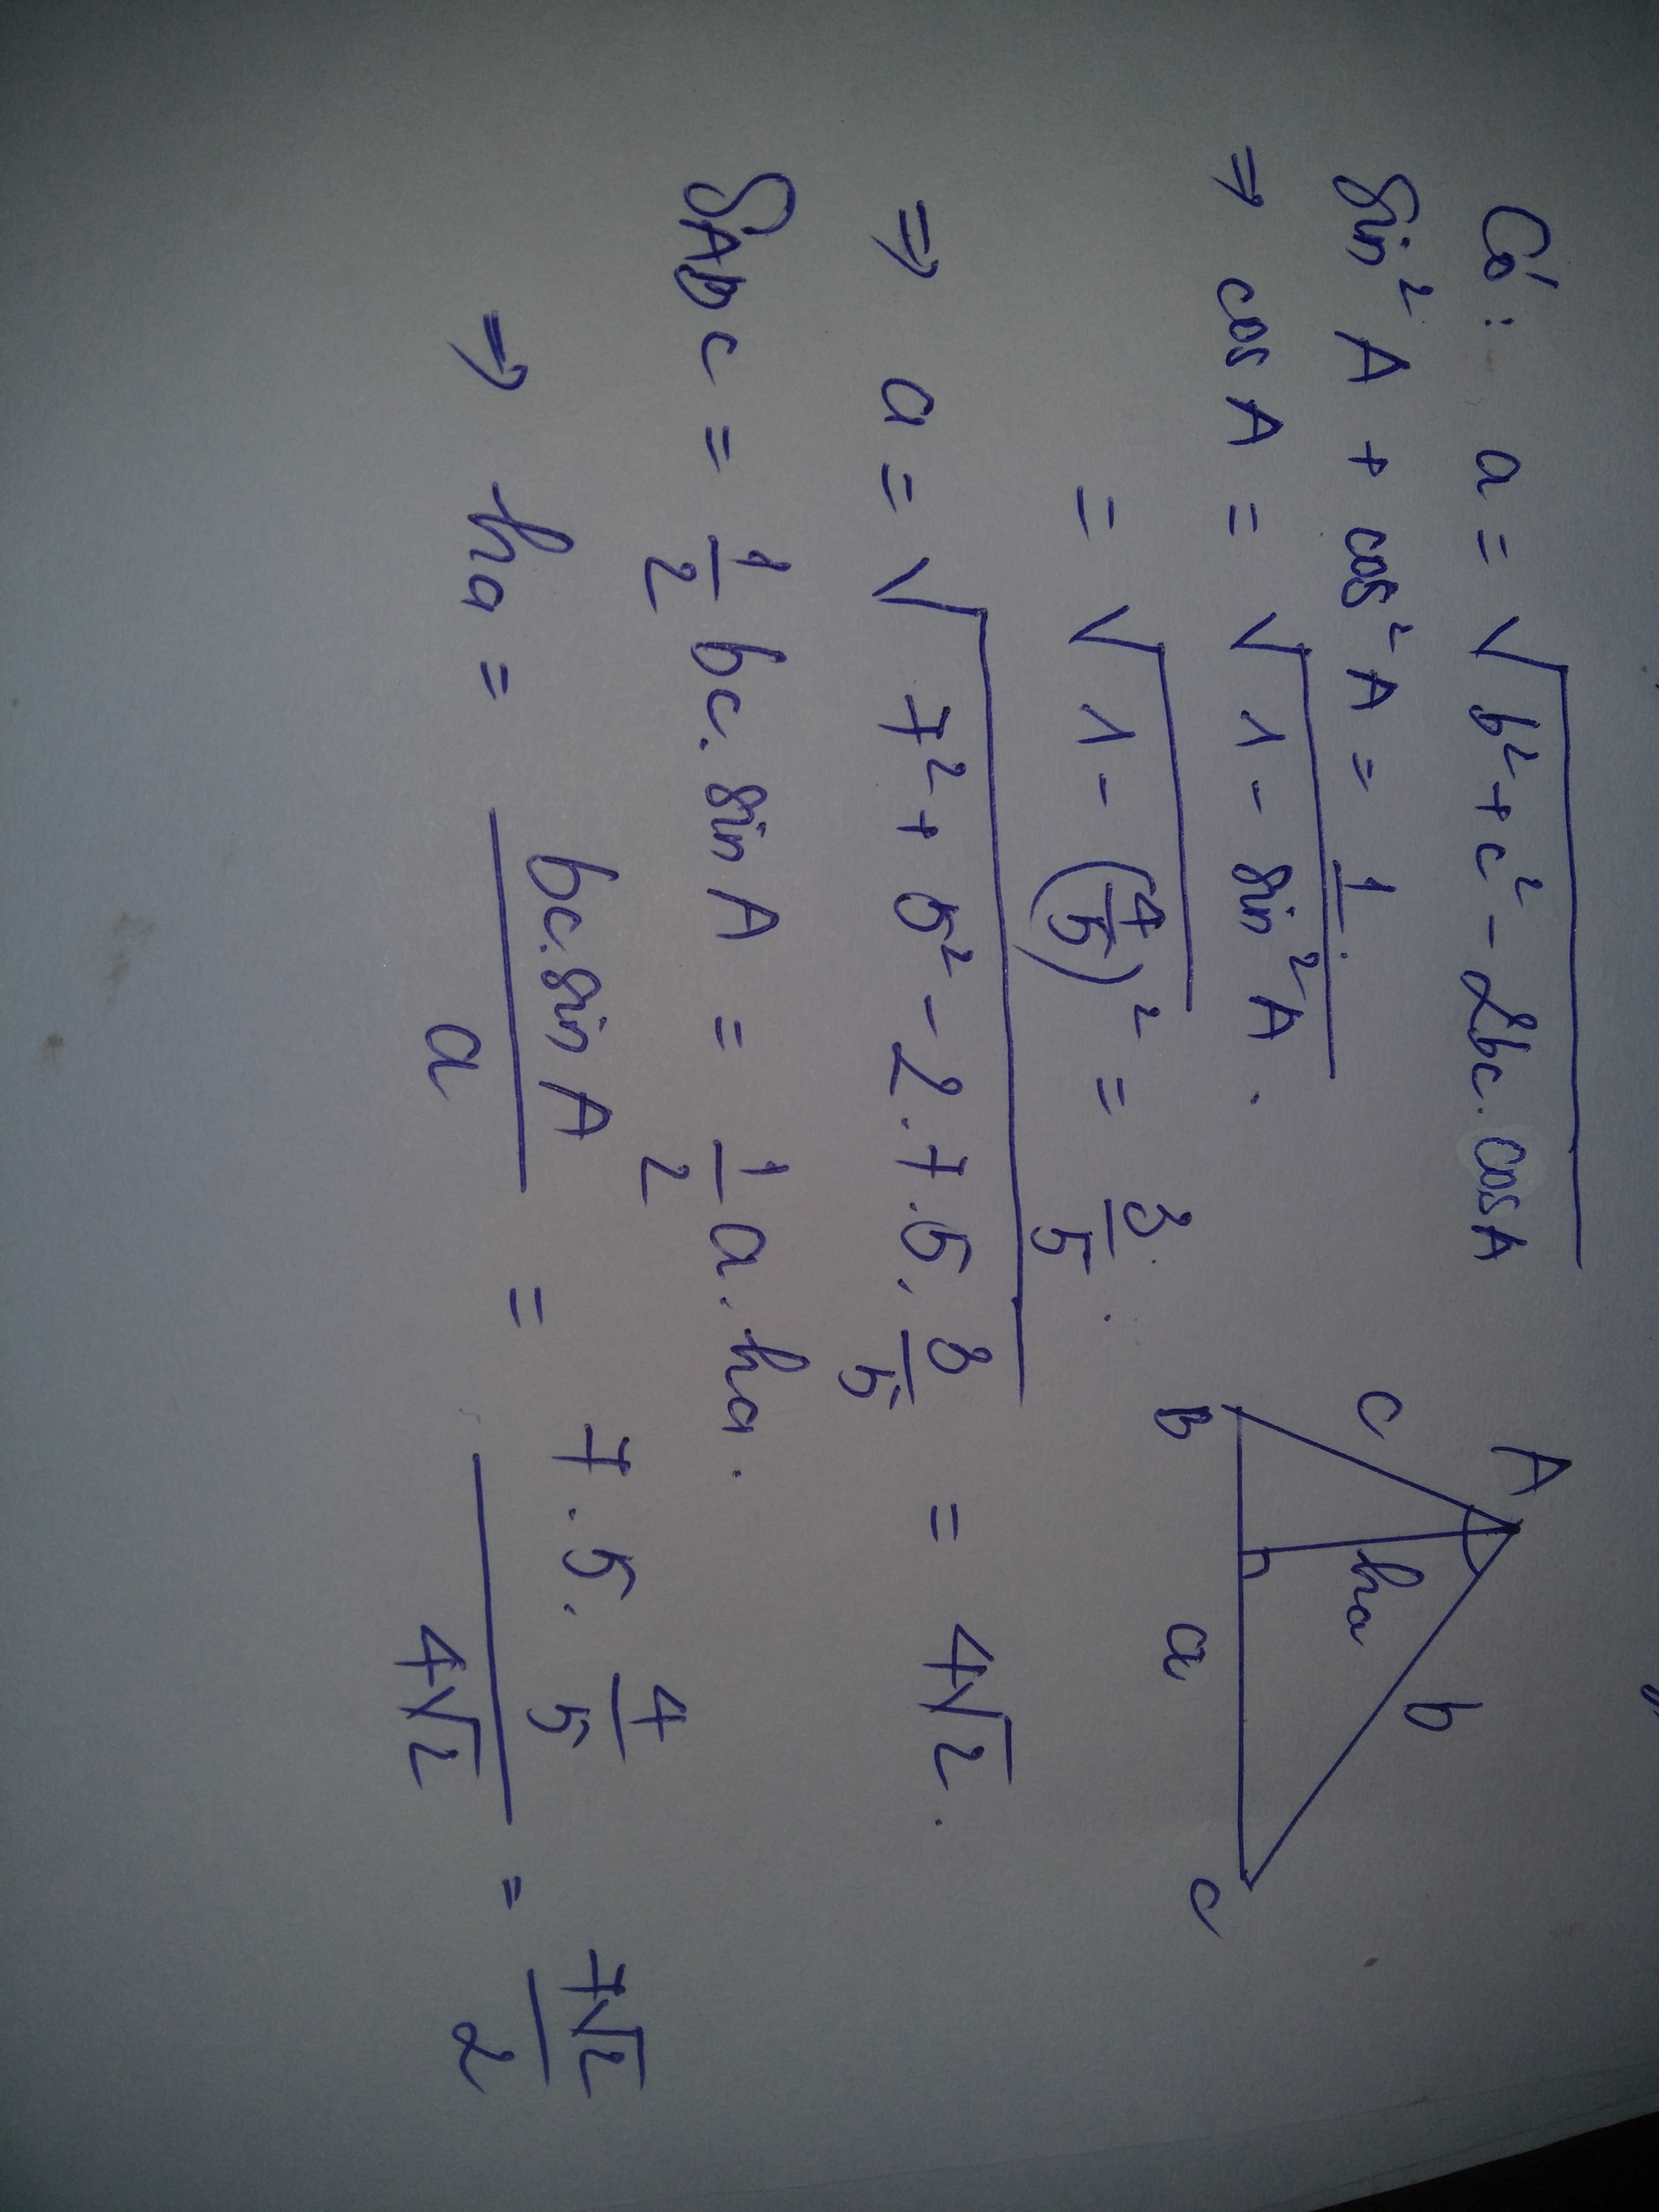 Có: a = √(b² + c² - 2bc.cosA)
sin²A + cos²A = 1.
⇒ cos A = √(1 - sin²A).
= √(1 - (4/5)²) = 3/5.
⇒ a = √(7² + 5² - 2.7.5.3/5) = 4√2.
SABC = 1/2 bc.sin A = 1/2 a.ha.
⇒ ha = bc.sin A / a = 7.5.4/5 / 4√2 = 7√2/2
A
c
ha
b
B
a
C